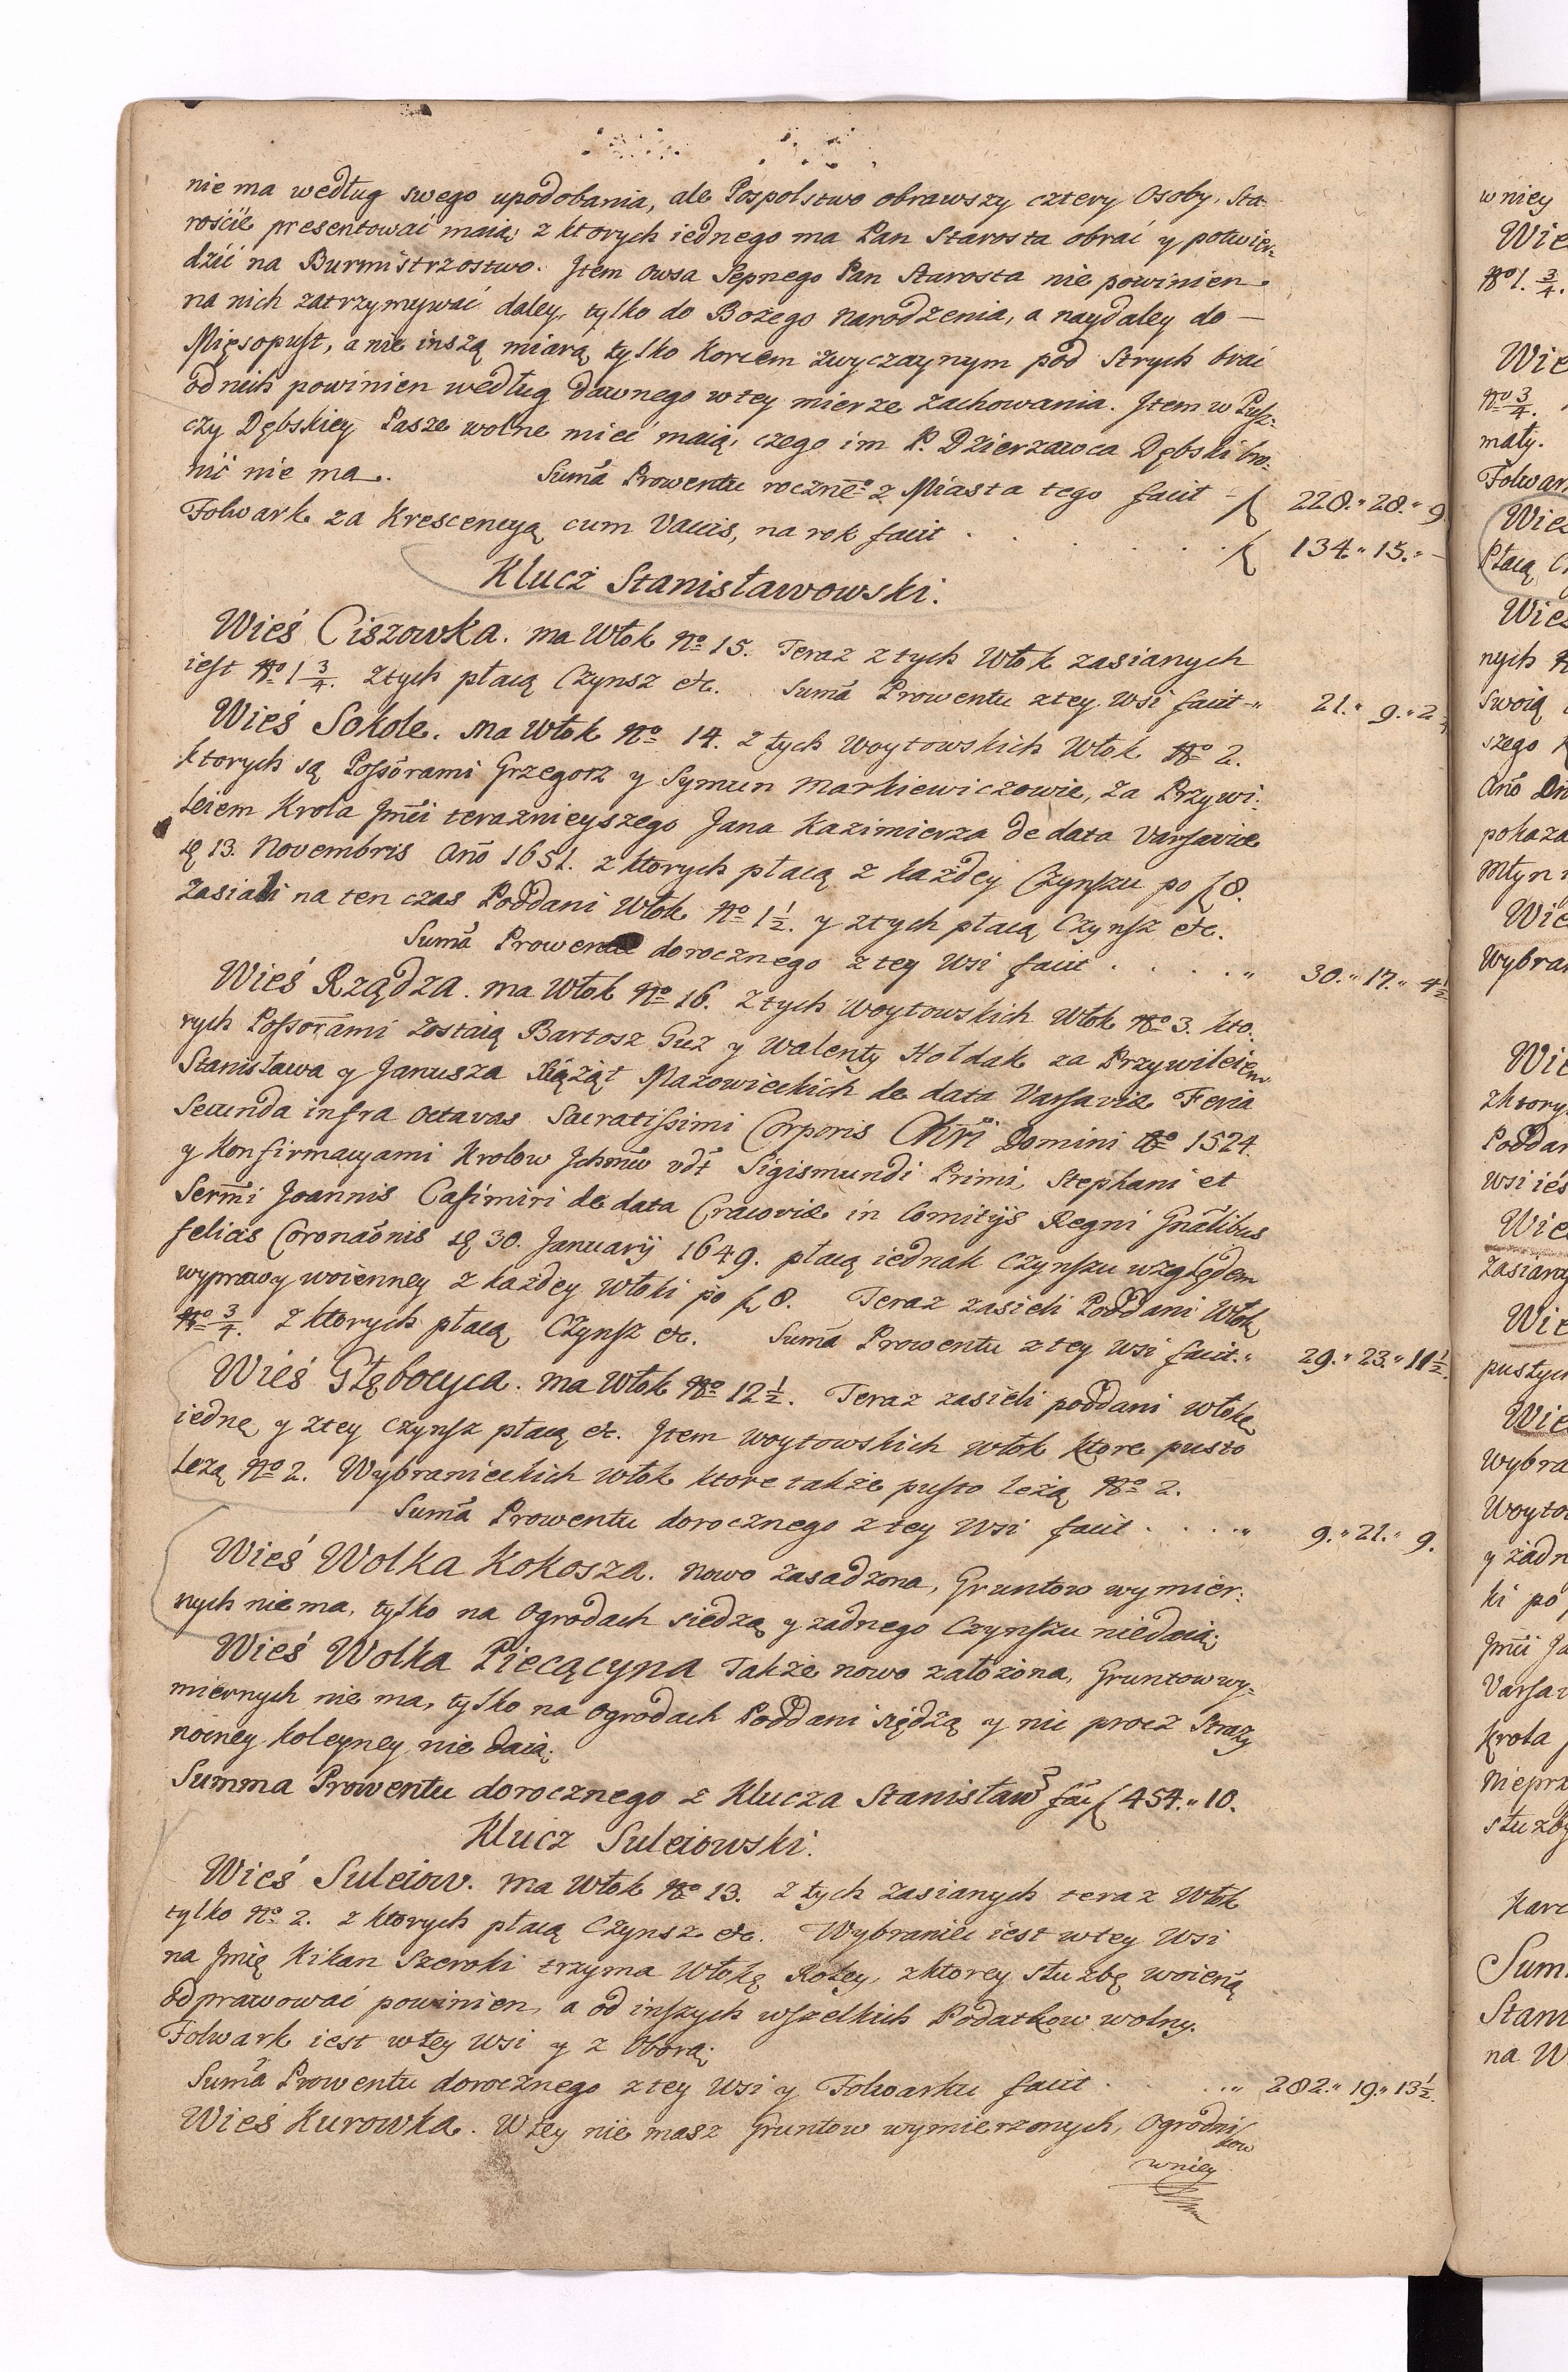 nie ma według swego upodobania, ale Pospolstwo obrawszy cztery Osoby, Sta-
rościе presentować maią, z ktorych iednego ma Pan Starosta obrać y potwier-
dzić na Burmistrzostwo. Item Owsa Sepnego Pan Starosta nie powinien
na nich zatrzymywać daley, tylko do Bożego Narodzenia, a naydaley do —
Mięsopust, a nie inszą miarą tylko Korcem zwyczaynym pod Strych brać
od nich powinien według dawnego w tey mierze zachowania. Item w Pusz-
czy Dębskiey Pasze wolne mieć maią, czego im P. Dzierzawca Dębski bro-
nić nie ma. Suma Prowentu roczne° z Miasta tego facit - f 228.„ 28.„ 9.
Folwark za Krescencyą cum Vaccis, na rok facit . . . . f 134.„ 15.„ —
Klucz Stanisławowski.
Wieś Ciszowka. ma Włok No 15. Teraz z tych Włok zasianych
iest No 1 3/4. Z tych płacą Czynsz etc. Suma Prowentu z tey Wsi facit „ 21.„ 9.„ 2
Wieś Sokole. ma Włok No 14. z tych Woytowskich Włok No 2.
ktorych są Possorami Grzegorz y Symun Markiewiczowie, za Przywi-
leiem Krola Jmći teraznieyszego Jana Kazimierza de data Varsaviæ
13. Novembris Año 1651. z ktorych płacą z każdey Czynszu po f 8.
Zasiali na ten czas Poddani Włok No 1 1/2. y z tych płacą Czynsz etc.
Suma Prowentu dorocznego z tey Wsi facit . . . . „ 30.„ 17.„ 4 1/2
Wieś Rządza. ma Włok No 16. Z tych Woytowskich Włok No 3. kto-
rych Possorami zostaią Bartosz Guz y Walenty Hołdak za Przywileiem
Stanisława y Janusza Xiążąt Mazowieckich de data Varsaviæ Feria
Secunda infra Octavas Sacratissimi Corporis Chri Domini No 1524.
y Konfirmacyami Krolow Ichmćiw vdt Sigismundi Primi, Stephani et
Sermi Joannis Casimiri de data Cracoviæ in Comitijs Regni Gnalibus
felicis Coronaōnis 30. Januarij 1649. płacą iednak Czynszu względem
wyprawy woienney z każdey Włoki po f 8. Teraz zasieli Poddani Włok
No 3/4. z ktorych płacą Czynsz etc. Suma Prowentu z tey Wsi facit.„ 29.„ 23.„ 11 1/2.
Wieś Głębocyca. ma Włok No 12 1/2. Teraz zasieli poddani włokę
iednę y z tey Czynsz płacą etc. Item Woytowskich włok ktore pusto
leżą No 2. Wybranieckich włok ktore także pusto leżą No 2.
Suma Prowentu dorocznego z tey Wsi facit . . . . „ 9.„ 21.„ 9.
Wieś Wolka Kokosza. nowo zasadzona, Gruntow wymier-
nych nie ma, tylko na Ogrodach siedzą y żadnego Czynszu niedaią.
Wieś Wolka Piecącyna Także nowo założona, Gruntow wy-
miernych nie ma, tylko na Ogrodach Poddani siędzą y nic procz Straży
nocney koleyney nie daią.
Summa Prowentu dorocznego z Klucza Stanisław fac f 454.„ 10.
Klucz Suleiowski.
Wieś Suleiow. ma Włok No 13. z tych zasianych teraz Włok
tylko No 2. z ktorych płacą Czynsz etc. Wybraniec iest w tey Wsi
na Jmię Kikan Szeroki trzyma Włokę Roley, z ktorey służbę woieną
odprawować powinien, a od inszych wszelkich Podatkow wolny.
Folwark iest w tey Wsi y z Oborą.
Suma Prowentu dorocznego z tey Wsi y Folwarku facit . . „ 282.„ 19.„ 13 1/2.
Wieś Kurowka. W tey nie masz Gruntow wymierzonych, Ogrodni-
kow
w niey